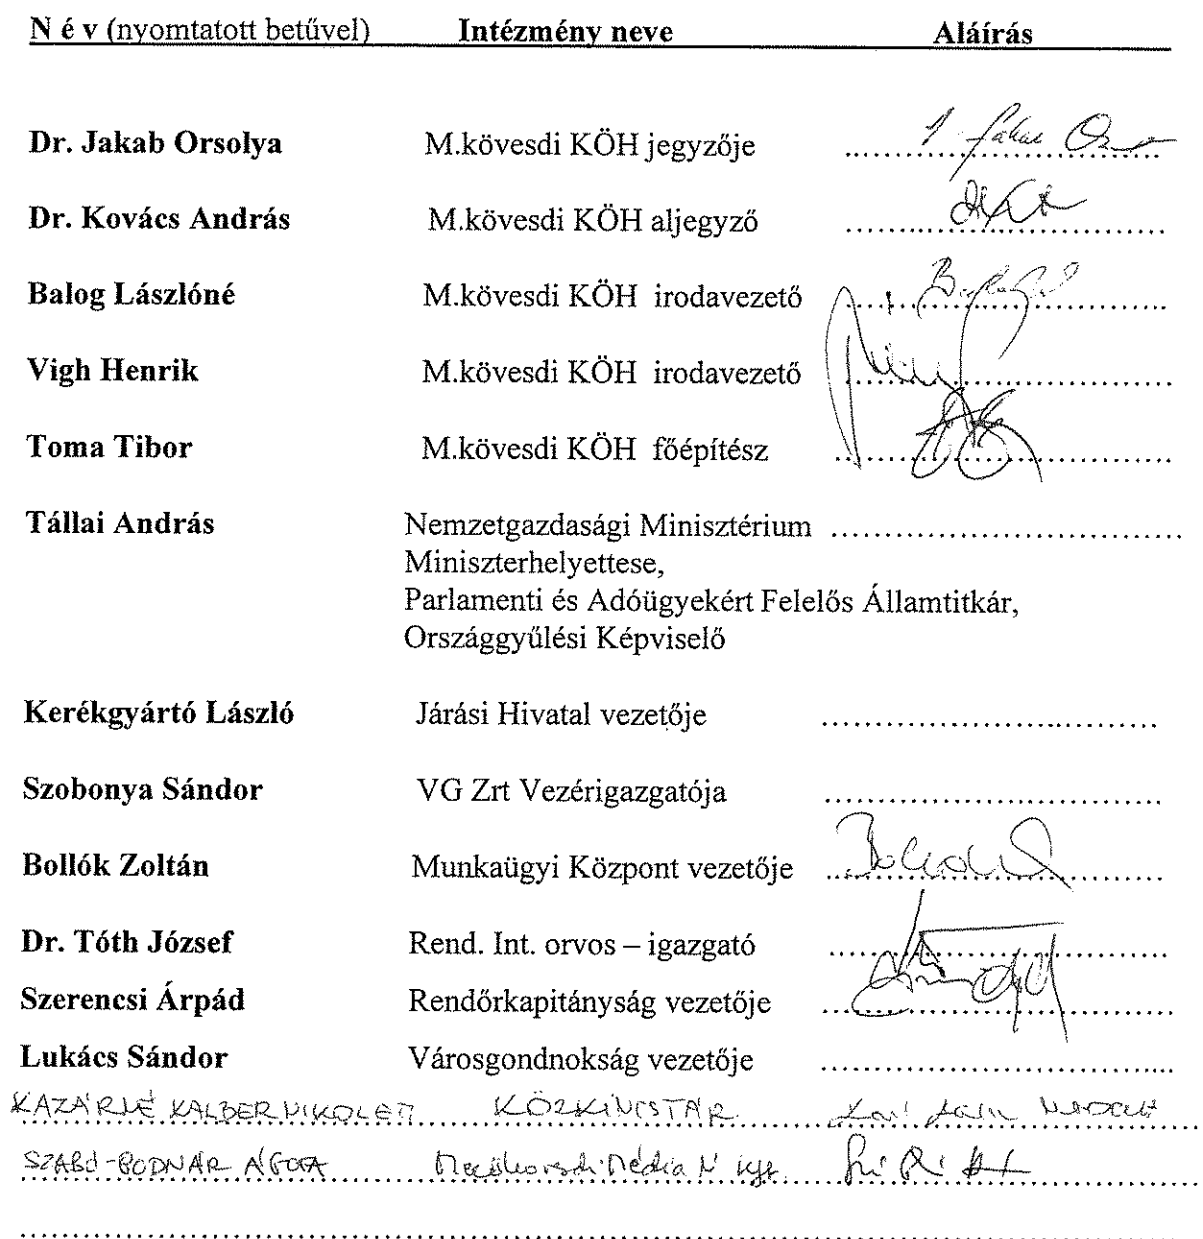 N é v (nyomtatott betűvel) Intézmény neve Aláírás
Dr. Jakab Orsolya M.kövesdi KÖH jegyzője ....................
Dr. Kovács András M.kövesdi KÖH aljegyző ....................
Balog Lászlóné M.kövesdi KÖH irodavezető ....................
Vigh Henrik M.kövesdi KÖH irodavezető ....................
Toma Tibor M.kövesdi KÖH főépítész ....................
Tállai András Nemzetgazdasági Minisztérium ....................
Miniszterhelyettese,
Parlamenti és Adóügyekért Felelős Államtitkár,
Országgyűlési Képviselő
Kerékgyártó László Járási Hivatal vezetője ....................
Szobonya Sándor VG Zrt Vezérigazgatója ....................
Bollók Zoltán Munkaügyi Központ vezetője ....................
Dr. Tóth József Rend. Int. orvos – igazgató ....................
Szerencsi Árpád Rendőrkapitányság vezetője ....................
Lukács Sándor Városgondnokság vezetője ....................
KAZÁRNÉ KALBER NIKOLETT KÖZKINCSTÁR
SZABÓ-BODNÁR ÁGOTA Mezőkövesdi Média N Kft.